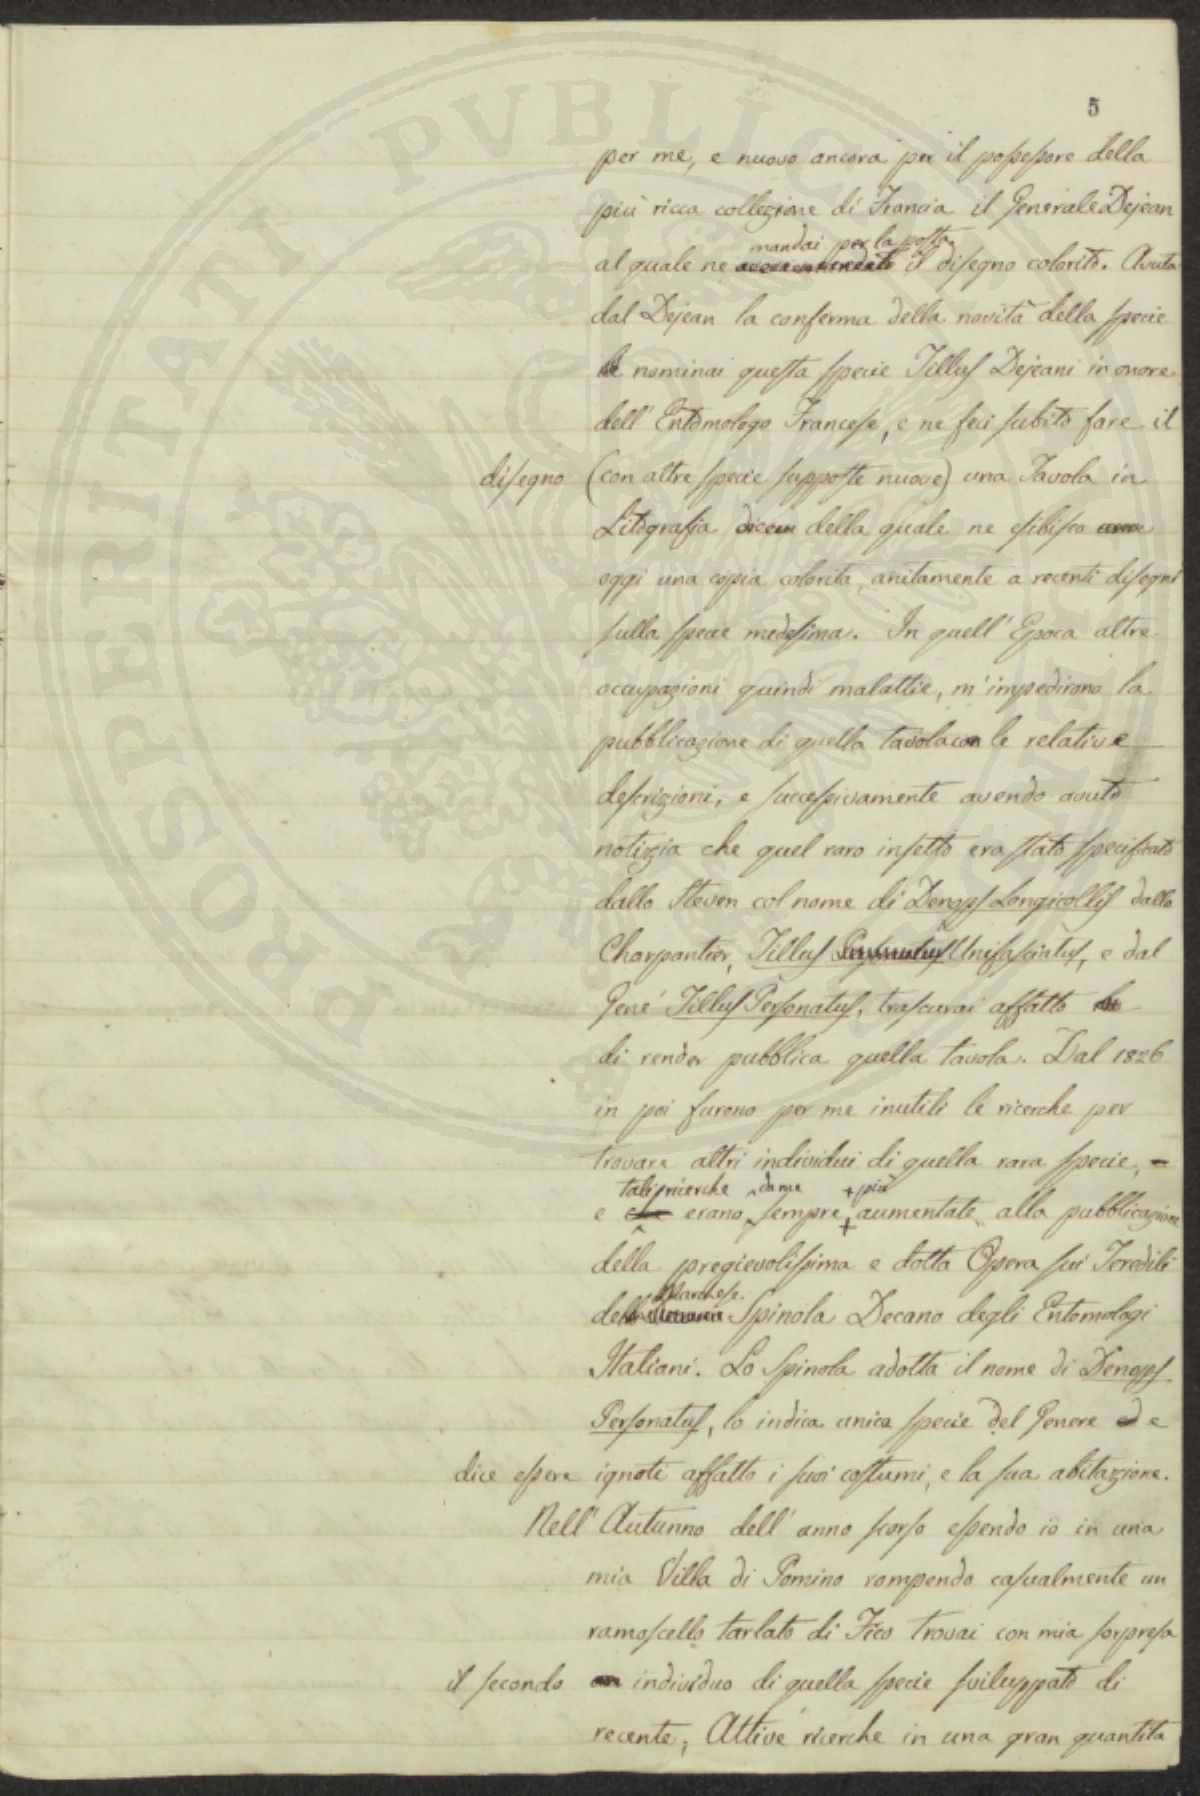 5
per me, e nuovo ancora per il possessore della
più ricca collezione di Francia il Generale Dejean
mandai per la posta
al quale ne il disegno colorito. Avuta
dal Dejean la conferma della novità della specie
nominai questa specie Tillus Dejeani in onore
dell' Entomologo Francese, e ne feci subito fare il
disegno (con altre specie supposte nuove) una Tavola in
Litografia della quale ne esibisco
oggi una copia colorita, unitamente a recenti disegni
sulla specie medesima. In quell' Epoca altre
occupazioni quindi malattie, m' impedirono la
pubblicazione di quella tavola con le relative
descrizioni, e successivamente avendo avuto
notizia che quel raro insetto era stato specificato
dallo Steven col nome di Denops Longicollis dallo
Charpantier, Tillus Unifasciatus, e dal
Gené Tillus Personatus, trascurai affatto
di render pubblica quella tavola. Dal 1826
in poi furono per me inutili le ricerche per
trovare altri individui di quella rara specie,
tali ricerche da me + più
e erano sempre + aumentate alla pubblicazione
della pregievolissima e dotta Opera sui Teredili
Marchese
del Spinola Decano degli Entomologi
Italiani. Lo Spinola adotta il nome di Denops
Personatus, lo indica unica specie del Genere e
dice essere ignoti affatto i suoi costumi, e la sua abitazione.
Nell' Autunno dell' anno scorso essendo io in una
mia Villa di Pomino rompendo casualmente un
ramoscello tarlato di Fico trovai con mia sorpresa
il secondo individuo di quella specie sviluppato di
recente; Attive ricerche in una gran quantità
PROSPERITATI PVBLICAE